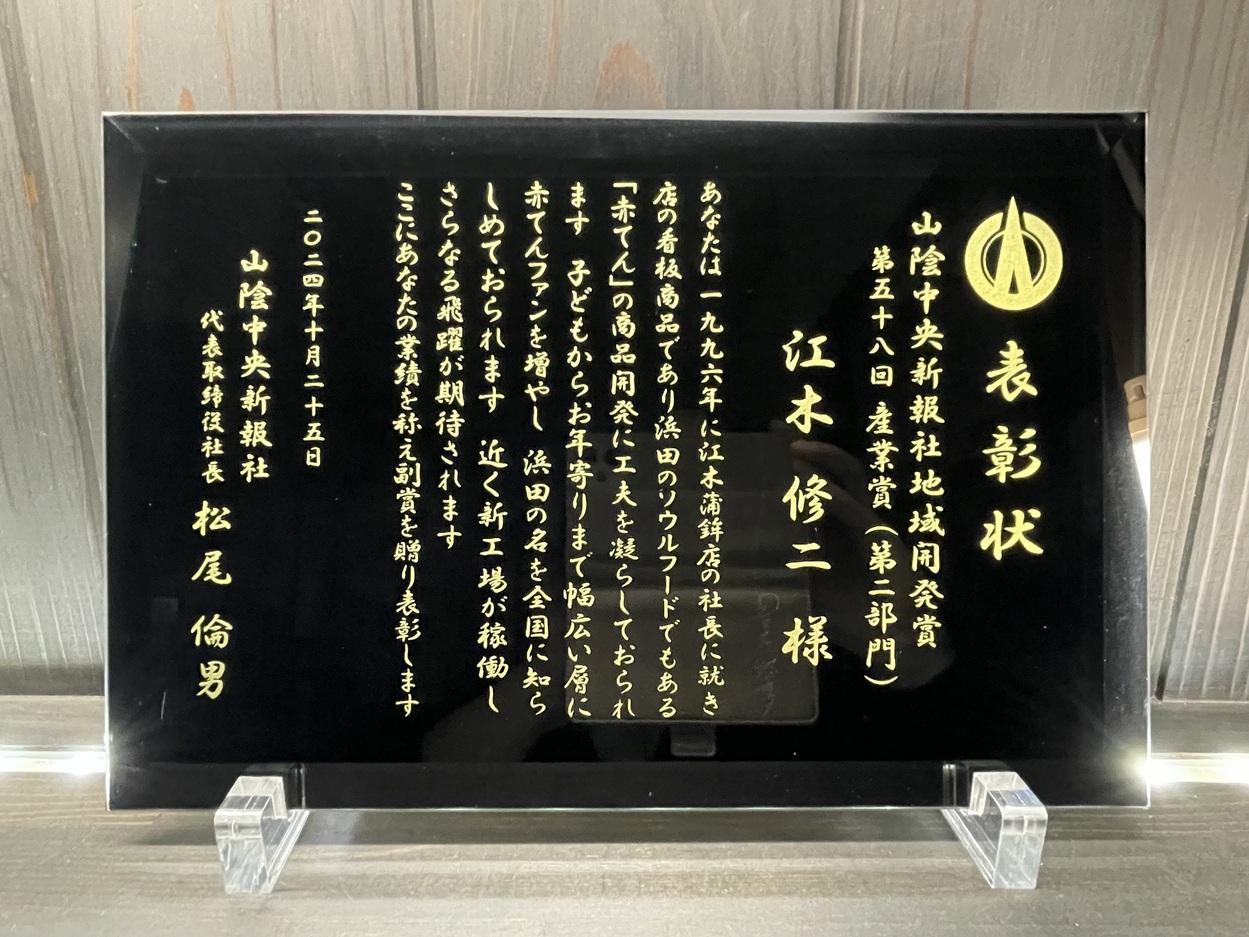 表彰状
山陰中央新報社地域開発賞
第五十八回 産業賞（第二部門）
江木 修二 様
あなたは一九九六年に江木蒲鉾店の社長に就き
店の看板商品であり浜田のソウルフードでもある
「赤てん」の商品開発に工夫を凝らしておられ
ます 子どもからお年寄りまで幅広い層に
赤てんファンを増やし 浜田の名を全国に知ら
しめておられます 近く新工場が稼働し
さらなる飛躍が期待されます
ここにあなたの業績を称え副賞を贈り表彰します
二〇二四年十月二十五日
山陰中央新報社
代表取締役社長 松尾 倫男